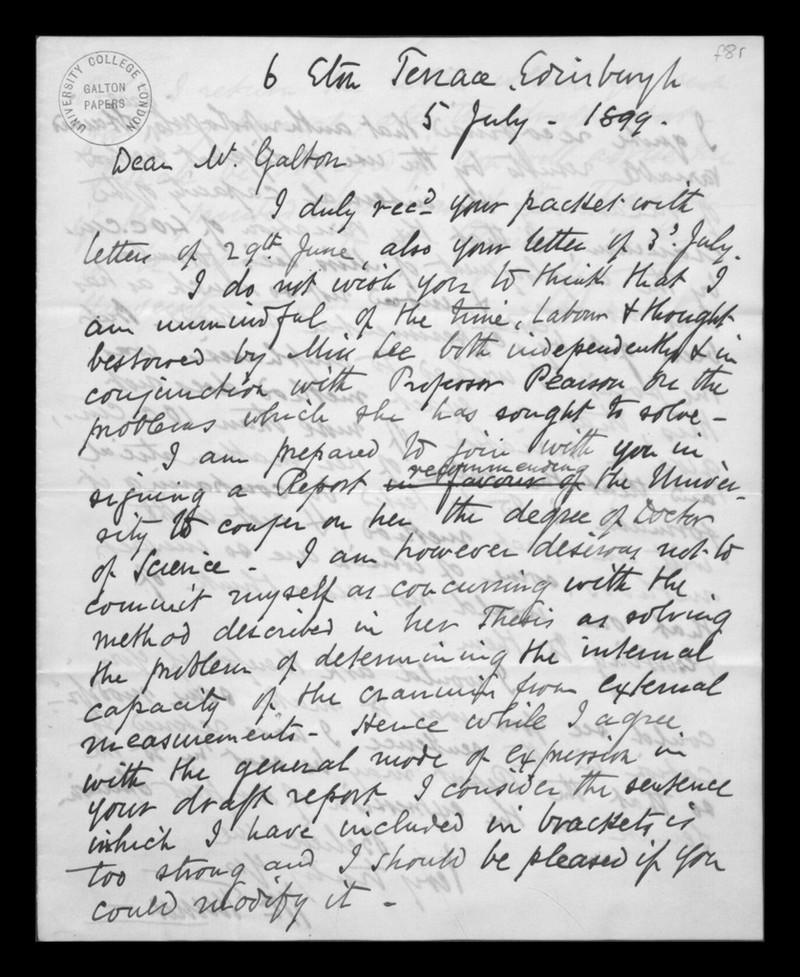 f8r
UNIVERSITY COLLEGE LONDON
GALTON
PAPERS
6 Eton Terrace, Edinburgh
5 July - 1899.
Dear Mr. Galton
I duly recd. your packet with
letter of 29th June, also your letter of 3d. July.
I do not wish you to think that I
am unmindful of the time, labour & thought
bestowed by Miss Lee both independently & in
conjunction with Professor Pearson on the
problems which she has sought to solve -
I am prepared to join with you in
recommending
signing a Report in favour of the Univer-
sity to confer on her the degree of Doctor
of Science - I am however desirous not to
commit myself as concurring with the
method described in her Thesis as solving
the problem of determining the internal
capacity of the cranium from external
measurements - Hence while I agree
with the general mode of expression in
your draft report I consider the sentence
which I have included in brackets is
too strong and I should be pleased if you
could modify it -